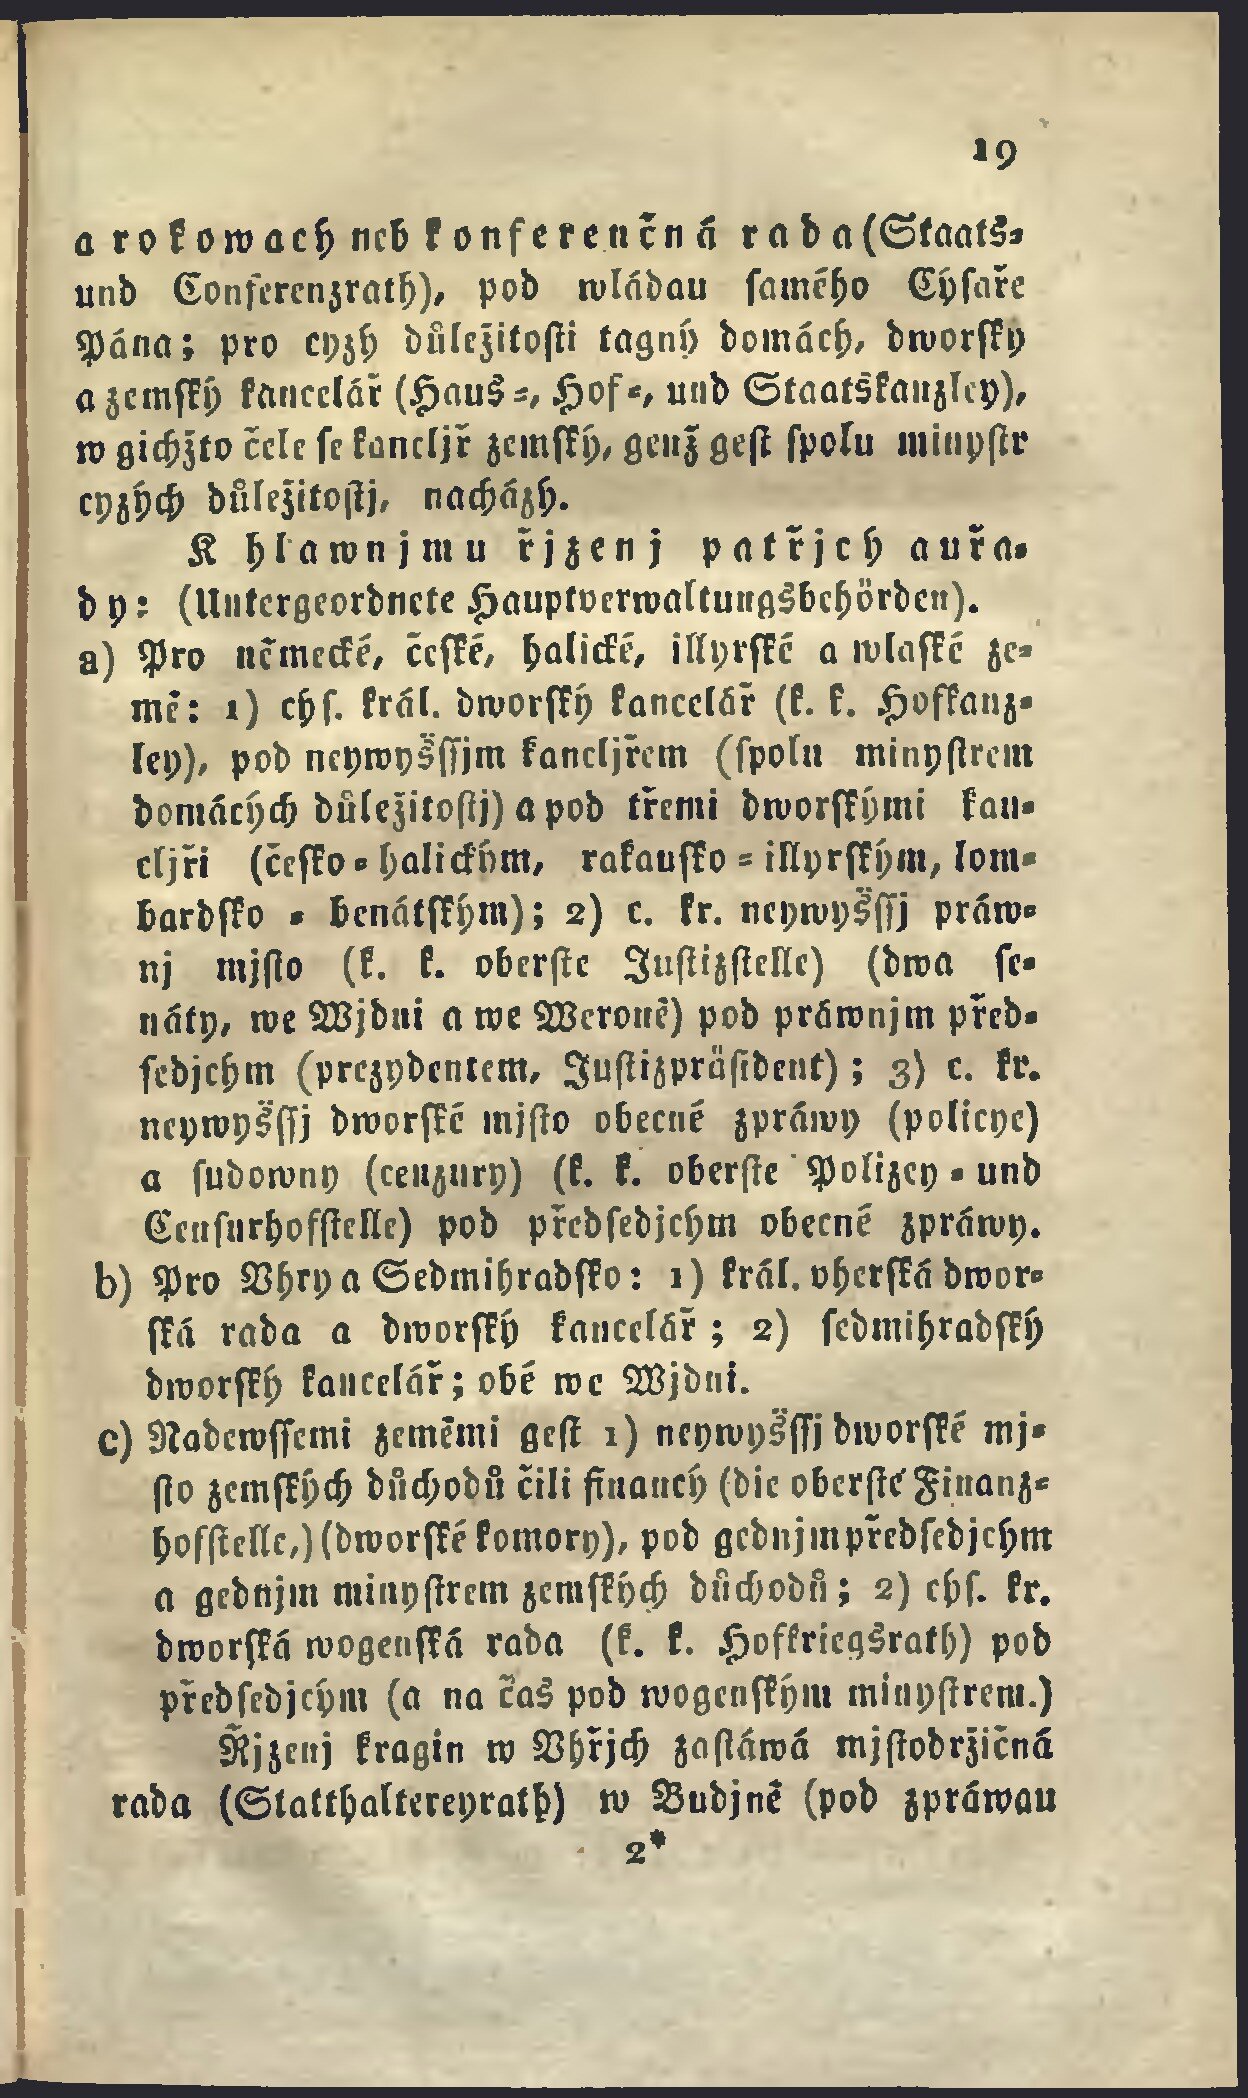 19
a rokowach neb konferenčná rada (Staats-
und Conferenzrath), pod wládau samého Cýsaře
Pána; pro cyzý důležitosti tagný domách, dworský
a zemský kancelář (Haus-, Hof-, und Staatskanzley),
w gichžto čele se kancljř zemský, genž gest spolu minystr
cyzých důležitostj, nacházý.
K hlawnjmu řjzenj patřjch auřa-
dy: (Untergeordnete Hauptverwaltungsbehörden).
a) Pro německé, české, halické, illyrské a wlaské ze-
mě: 1) cýs. král. dworský kancelář (k. k. Hofkanz-
ley), pod neywyšssjm kancljřem (spolu minystrem
domácých důležitostj) a pod třemi dworskými kan-
cljři (česko-halickým, rakausko-illyrským, lom-
bardsko-benátským); 2) c. kr. neywyšssj práw-
nj mjsto (k. k. oberste Justizstelle) (dwa se-
náty, we Wjdni a we Weroně) pod práwnjm před-
sedjcým (prezydentem, Justizpräsident); 3) c. kr.
neywyšssj dworské mjsto obecné zpráwy (policye)
a sudowny (cenzury) (k. k. oberste Polizey- und
Censurhofstelle) pod předsedjcým obecné zpráwy.
b) Pro Vhry a Sedmihradsko: 1) král. vherská dwor-
ská rada a dworský kancelář; 2) sedmihradský
dworský kancelář; obé we Wjdni.
c) Nadewssemi zeměmi gest 1) neywyšssj dworské mj-
sto zemských důchodů čili financý (die oberste Finanz-
hofstelle,) (dworské komory), pod gednjm předsedjcým
a gednjm minystrem zemských důchodů; 2) cýs. kr.
dworská wogenská rada (k. k. Hofkriegsrath) pod
předsedjcým (a na čas pod wogenským minystrem.)
Řjzenj kragin w Vhřjch zastáwá mjstodržičná
rada (Statthaltereyrath) w Budjně (pod zpráwau
2*